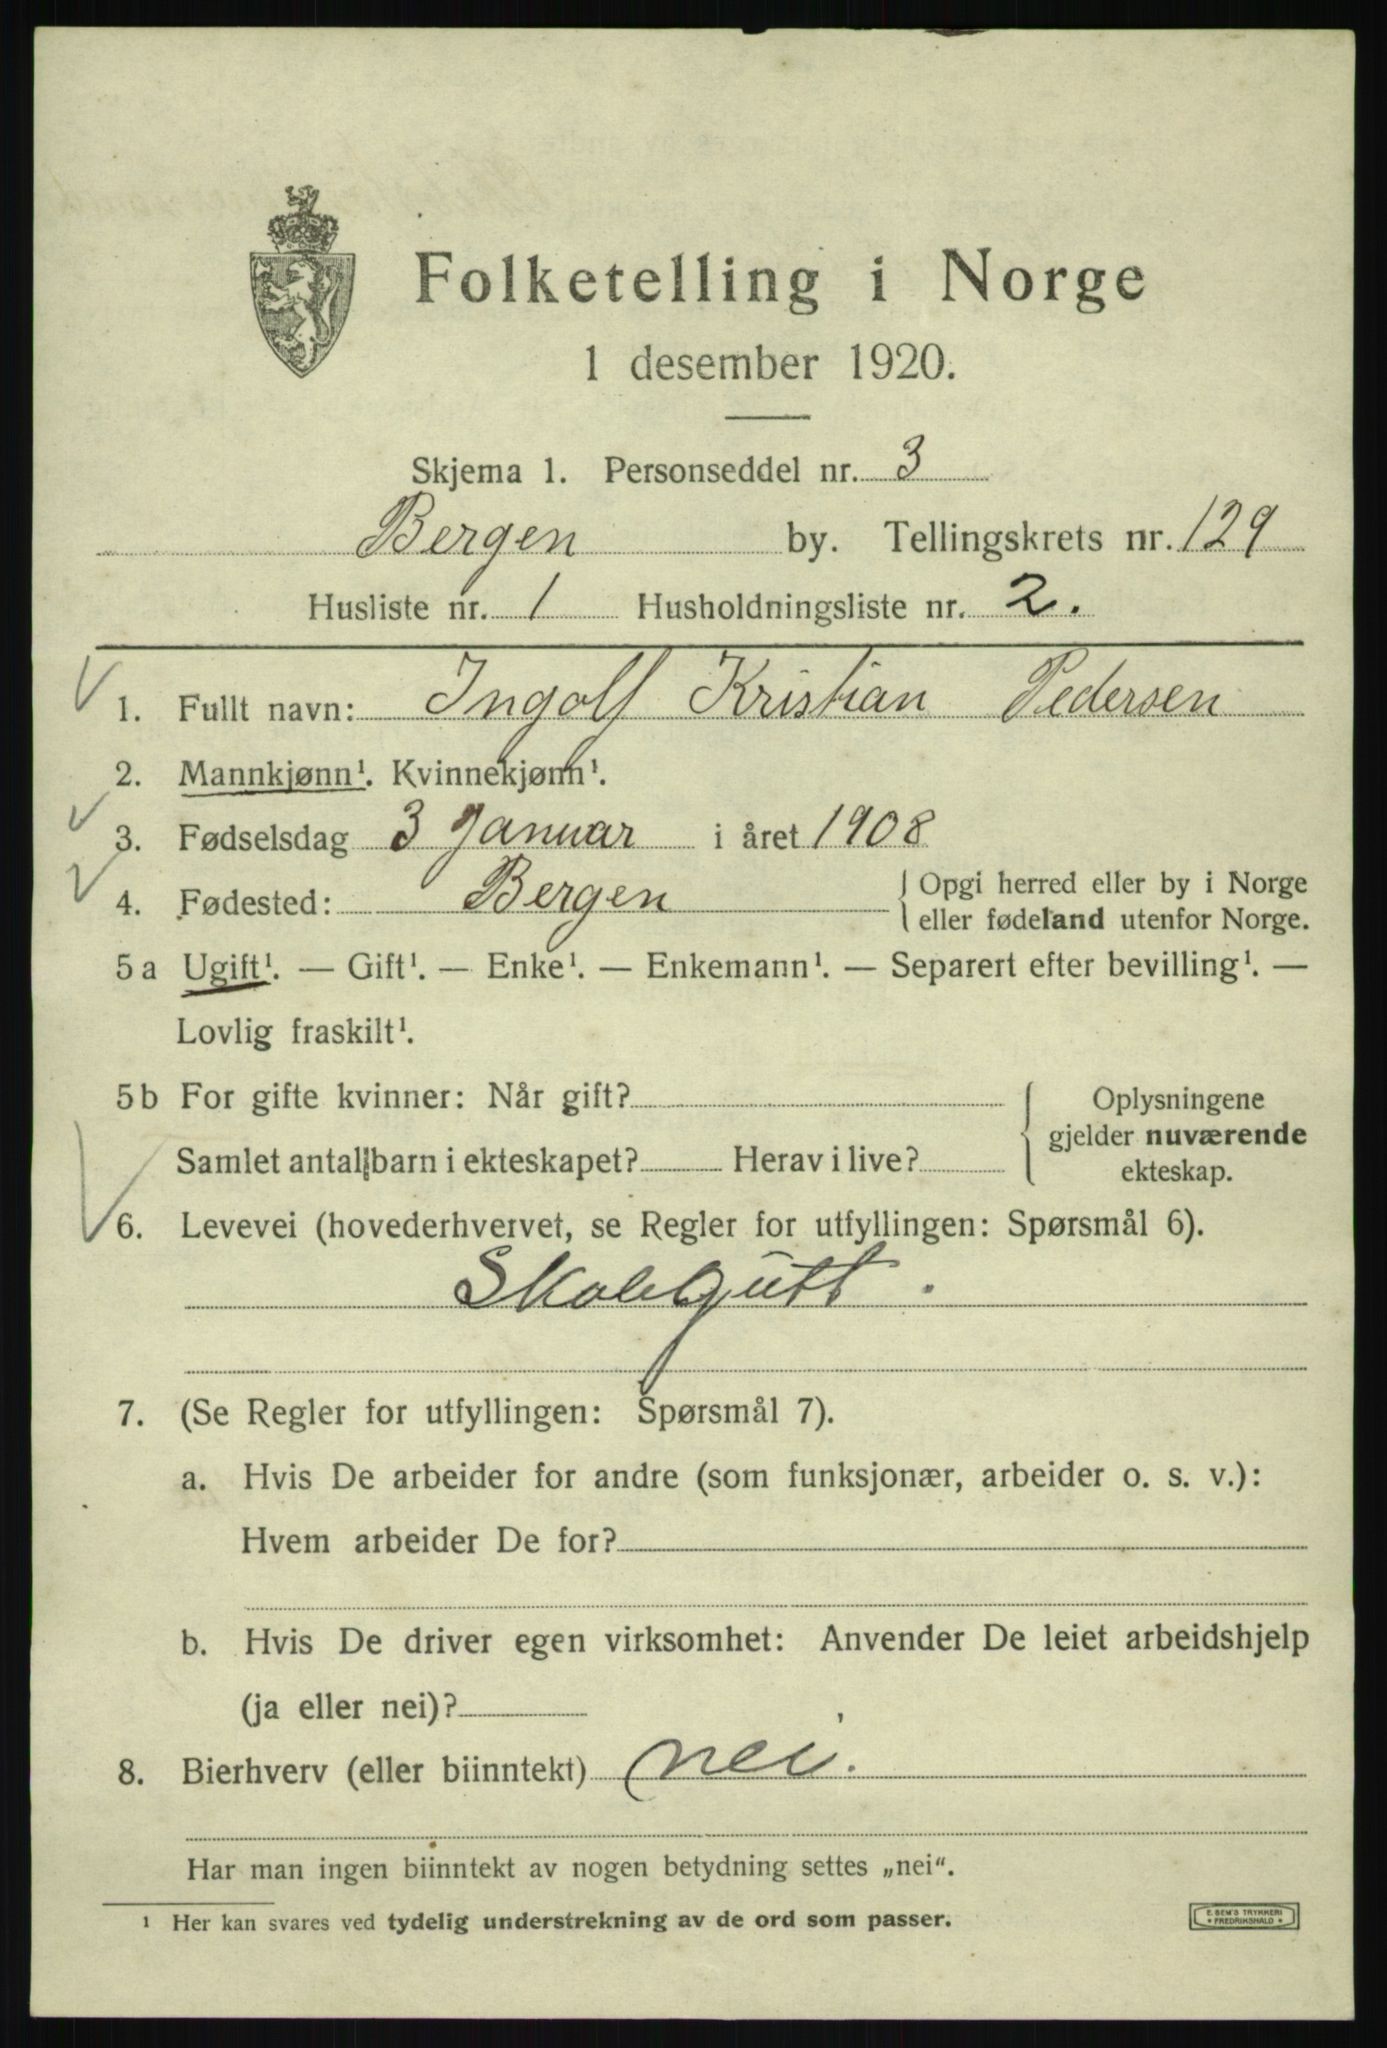 Folketelling i Norge
1 desember 1920.
Skjema 1. Personseddel nr. 3
Bergen by. Tellingskrets nr. 129
Husliste nr. 1 Husholdningsliste nr. 2.
1. Fullt navn: Ingolf Kristian Pedersen
2. Mannkjønn¹. Kvinnekjønn¹.
3. Fødselsdag 3 Januar i året 1908
4. Fødested: Bergen { Opgi herred eller by i Norge
eller fødeland utenfor Norge.
5 a Ugift¹. — Gift¹. — Enke¹. — Enkemann¹. — Separert efter bevilling¹. —
Lovlig fraskilt¹.
5 b For gifte kvinner: Når gift? { Oplysningene
gjelder nuværende
Samlet antall barn i ekteskapet? Herav i live? ekteskap.
6. Levevei (hovederhvervet, se Regler for utfyllingen: Spørsmål 6).
Skolegutt.
7. (Se Regler for utfyllingen: Spørsmål 7).
a. Hvis De arbeider for andre (som funksjonær, arbeider o. s. v.):
Hvem arbeider De for?
b. Hvis De driver egen virksomhet: Anvender De leiet arbeidshjelp
(ja eller nei)?
8. Bierhverv (eller biinntekt) nei.
Har man ingen biinntekt av nogen betydning settes „nei“.
¹ Her kan svares ved tydelig understrekning av de ord som passer.
E. SEM'S TRYKKERI
* FREDRIKSHALD *